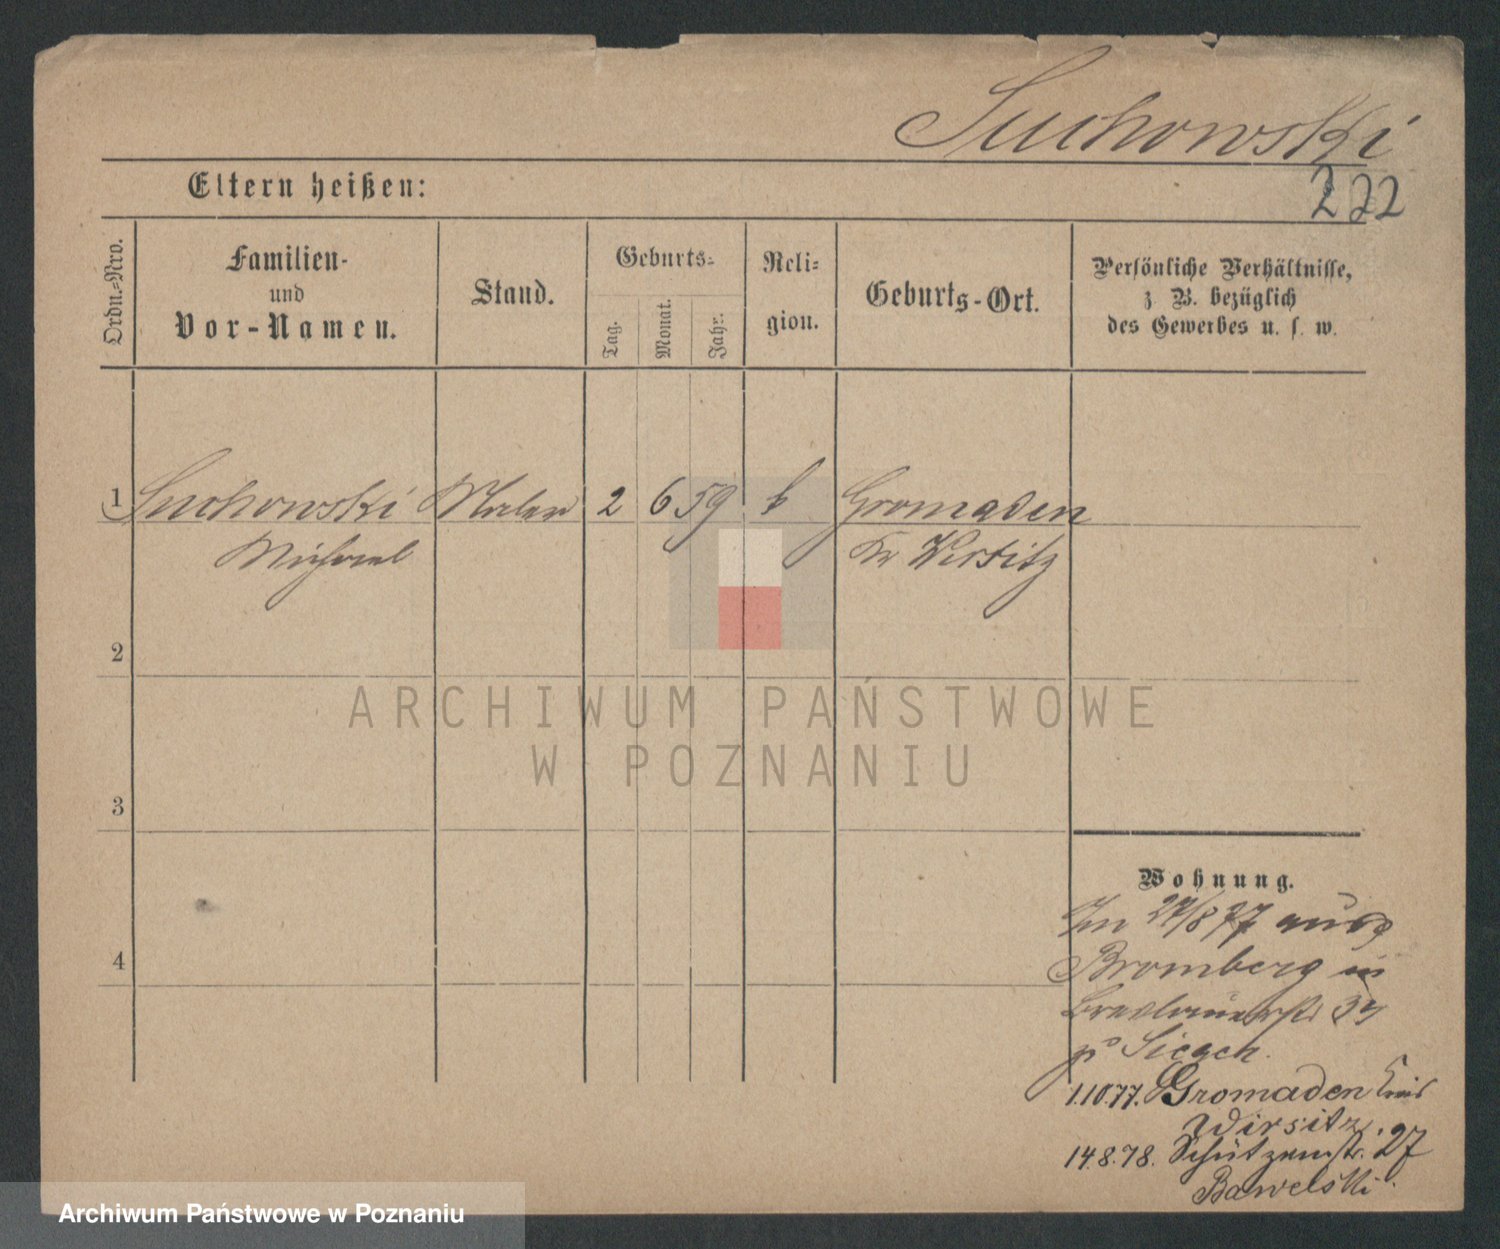 Suchowski
222
Eltern heißen:
Ordn.-Nro.
Familien-
und
Vor-Namen.
Stand.
Geburts-
Tag.
Monat.
Jahr.
Reli-
gion.
Geburts-Ort.
Persönliche Verhältnisse,
z B. bezüglich
des Gewerbes u. s. w.
1 Suchowski Maler 2 6 59 k Gromaden
Michael Kr Wirsitz
2
ARCHIWUM PAŃSTWOWE
W POZNANIU
3
Wohnung.
27/8 77 aus
4
Bromberg in
Breslauerstr 34
1.10.77. Gromaden Kreis
Wirsitz.
14.8.78. Schützenstr. 27
Bawelski.
Archiwum Państwowe w Poznaniu